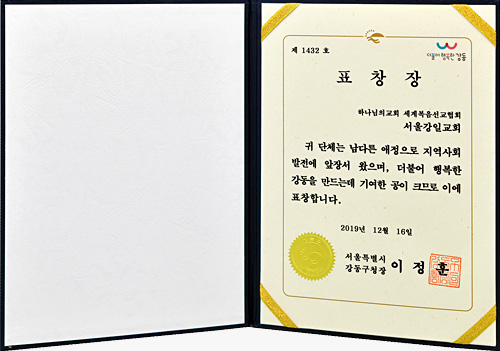 제 1432 호
더불어 행복한 강동
표 창 장
하나님의교회 세계복음선교협회
서울강일교회
귀 단체는 남다른 애정으로 지역사회
발전에 앞장서 왔으며, 더불어 행복한
강동을 만드는데 기여한 공이 크므로 이에
표창합니다.
2019년 12월 16일
서울특별시
강동구청장 이 정 훈